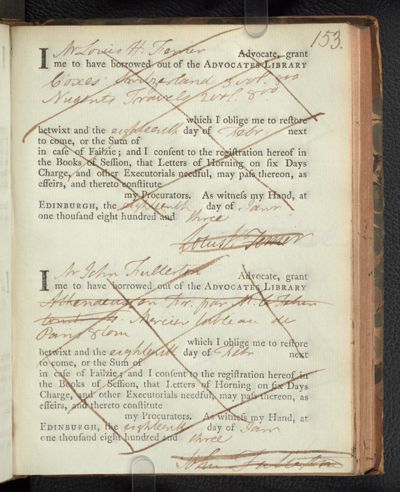 153.
I Mr Louis H. Ferrier Advocate, grant
me to have borrowed out of the ADVOCATES LIBRARY
Coxes Switzerland 3 vol. 8vo
Nugents Travels 2 vol. 8vo
which I oblige me to reſtore
betwixt and the eighteenth day of Febr next
to come, or the Sum of
in caſe of Failzie; and I conſent to the regiſtration hereof in
the Books of Seſſion, that Letters of Horning on ſix Days
Charge, and other Executorials needful, may paſs thereon, as
effeirs, and thereto conſtitute
my Procurators. As witneſs my Hand, at
EDINBURGH, the eighteenth day of Janr
one thouſand eight hundred and three
Louis H. Ferrier
I Mr John Fullerton Advocate, grant
me to have borrowed out of the ADVOCATES LIBRARY
par M.
Mercier tableau de
Paris
which I oblige me to reſtore
betwixt and the eighteenth day of Febr next
to come, or the Sum of
in caſe of Failzie; and I conſent to the regiſtration hereof in
the Books of Seſſion, that Letters of Horning on ſix Days
Charge, and other Executorials needful, may paſs thereon, as
effeirs, and thereto conſtitute
my Procurators. As witneſs my Hand, at
EDINBURGH, the eighteenth day of Janr
one thouſand eight hundred and three
John Fullerton